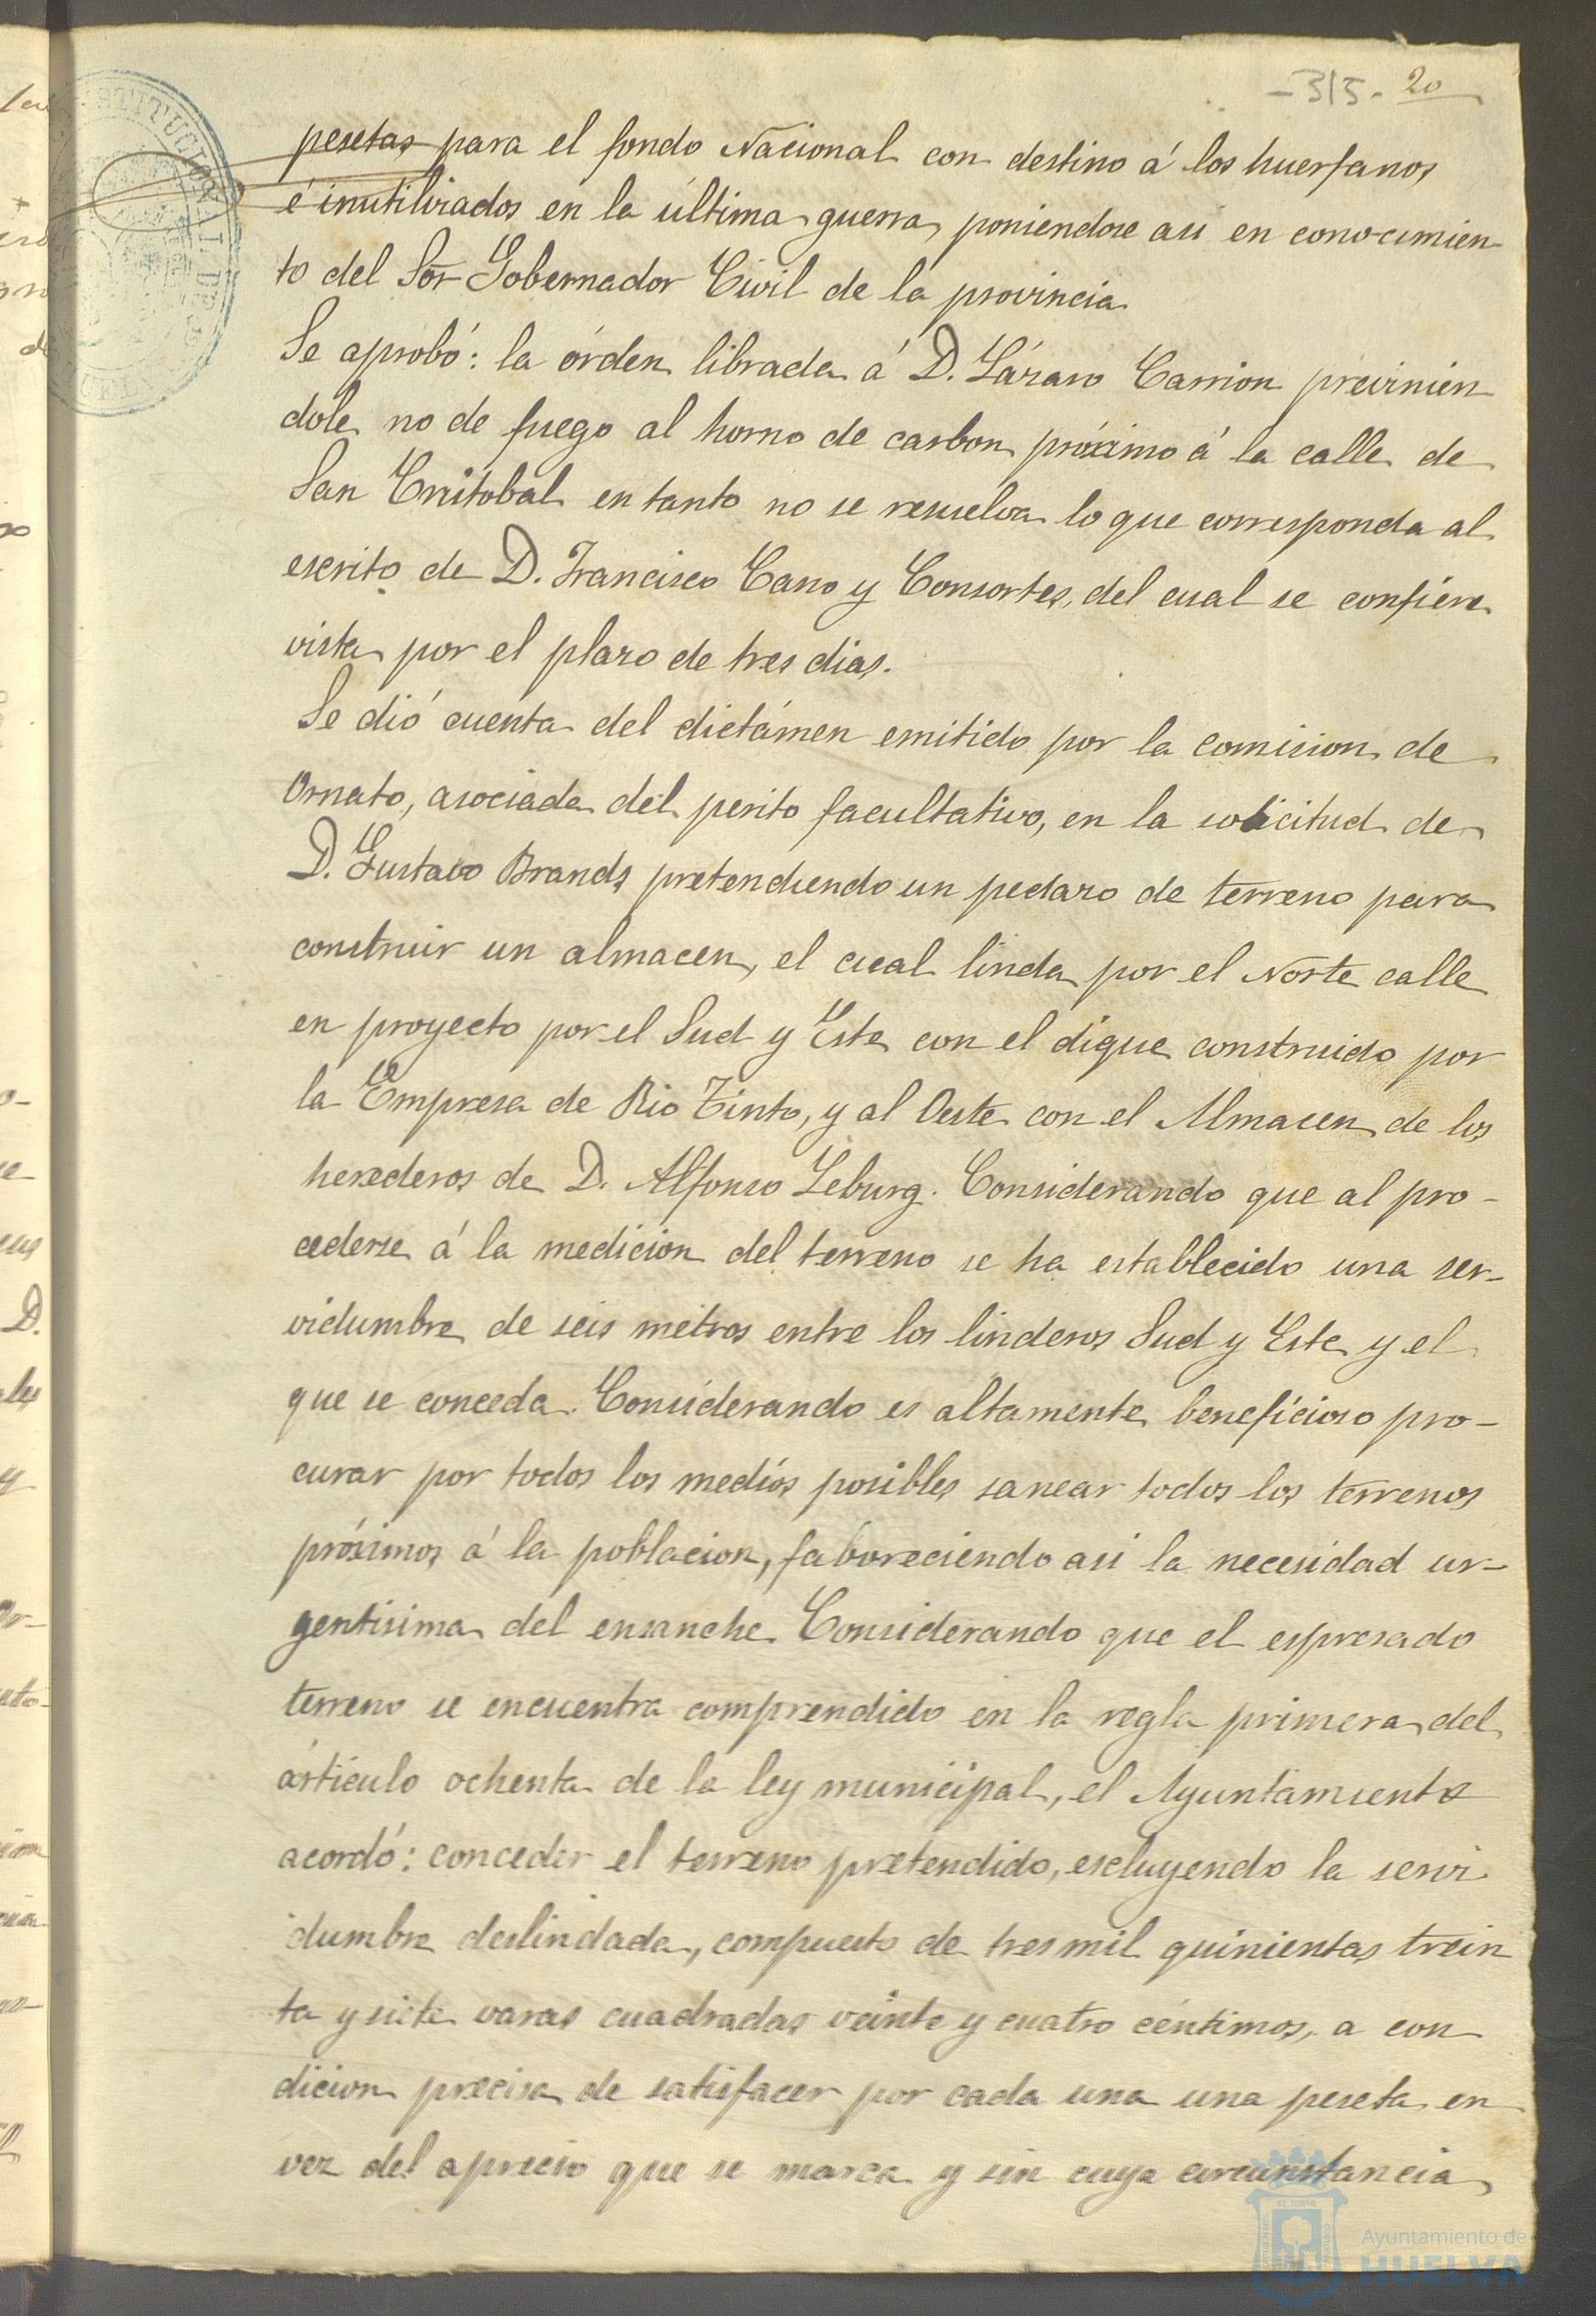 -315- 20
pesetas para el fondo Nacional con destino á los huerfanos
é inutilizados en la última guerra, poniendose asi en conocimien-
to del Sor Gobernador Civil de la provincia
Se aprobó: la órden librada á D. Lázaro Carrion previnien
dole no de fuego al horno de carbon próximo á la calle de
San Cristobal en tanto no se resuelva lo que corresponda al
escrito de D. Francisco Cano y Consortes, del cual se confiere
vista por el plazo de tres dias.
Se dió cuenta del dictámen emitido por la comision de
Ornato, asociada del perito facultativo, en la solicitud de
D. Gustavo Brands pretendiendo un pedazo de terreno para
construir un almacen, el cual linda por el Norte calle
en proyecto por el Sud y Este con el dique construido por
la Empresa de Rio Tinto, y al Oeste con el Almacen de los
herederos de D. Alfonso Leburg. Considerando que al pro-
cederse á la medicion del terreno se ha establecido una ser-
vidumbre de seis metros entre los linderos Sud y Este y el
que se conceda. Considerando es altamente beneficioso pro-
curar por todos los medios posibles sanear todos los terrenos
próximos á la poblacion, faboreciendo asi la necesidad ur-
gentisima del ensanche. Considerando que el espresado
terreno se encuentra comprendido en la regla primera del
artículo ochenta de la ley municipal, el Ayuntamiento
acordó: conceder el terreno pretendido, escluyendo la servi
dumbre deslindada, compuesto de tres mil quinientas trein
ta y siete varas cuadradas veinte y cuatro céntimos, a con
dicion precisa de satisfacer por cada una una peseta en
vez del aprecio que se marca y sin cuya circunstancia
Ayuntamiento de
HUELVA